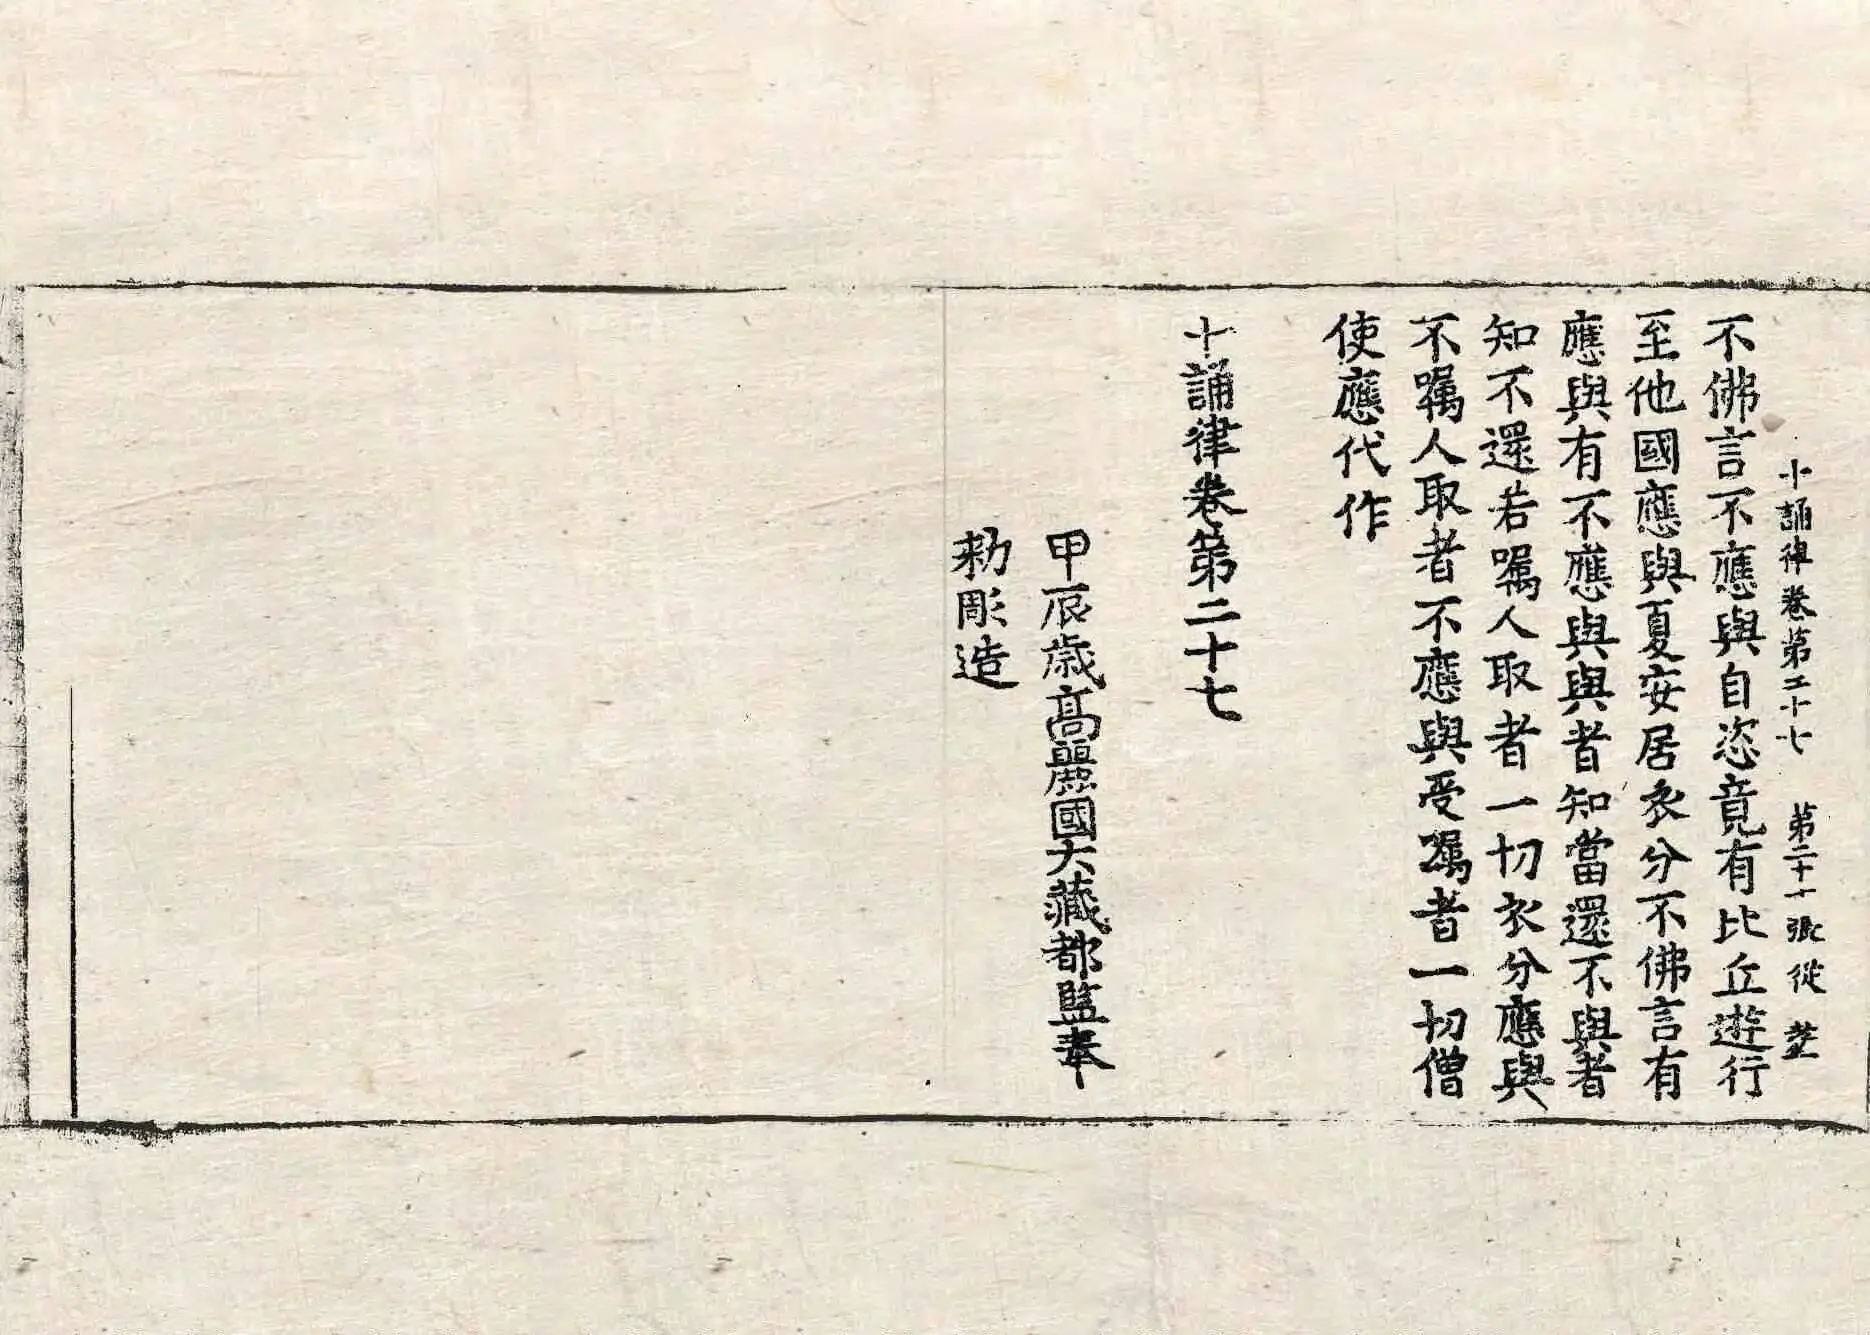 十誦律卷第二十七 第二十一張 從
不佛言不應與自恣竟有比丘遊行
至他國應與夏安居衣分不佛言有
應與有不應與與者知當還不與者
知不還若嘱人取者一切衣分應與
不嘱人取者不應與受嘱者一切僧
使應代作
十誦律卷第二十七
甲辰歲高麗國大藏都監奉
勑彫造